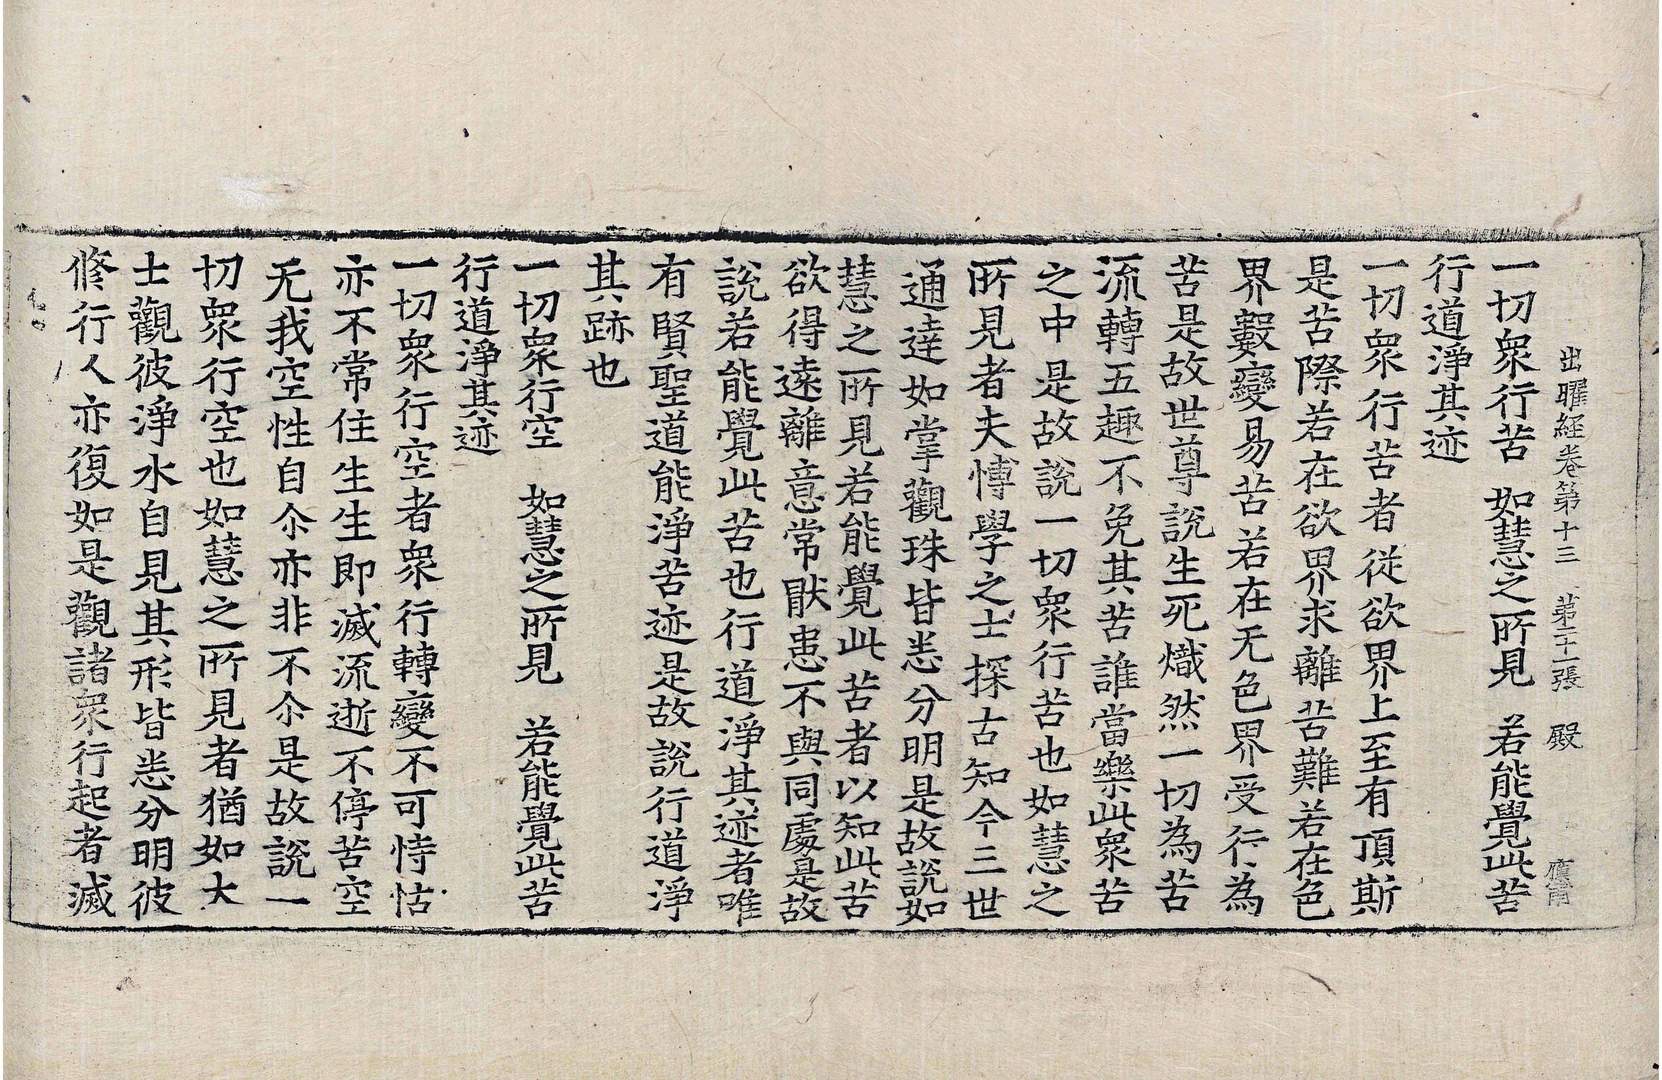 出曜経卷第十三 第二十一張 殿
一切衆行苦 如慧之所見 若能覺此苦
行道淨其迹
一切衆行苦者從欲界上至有頂斯
是苦際若在欲界求離苦難若在色
界數變易苦若在无色界受行為
苦是故世尊說生死熾然一切為苦
流轉五趣不免其苦誰當樂此衆苦
之中是故說一切衆行苦也如慧之
所見者夫愽學之士探古知今三世
通達如掌觀珠皆悉分明是故說如
慧之所見若能覺此苦者以知此苦
欲得遠離意常猒患不與同處是故
說若能覺此苦也行道淨其迹者唯
有賢聖道能淨苦迹是故說行道淨
其跡也
一切衆行空 如慧之所見 若能覺此苦
行道淨其迹
一切衆行空者衆行轉變不可恃怙
亦不常住生生即滅流逝不停苦空
无我空性自尒亦非不尒是故說一
切衆行空也如慧之所見者猶如大
士觀彼淨水自見其形皆悉分明彼
脩行人亦復如是觀諸衆行起者滅